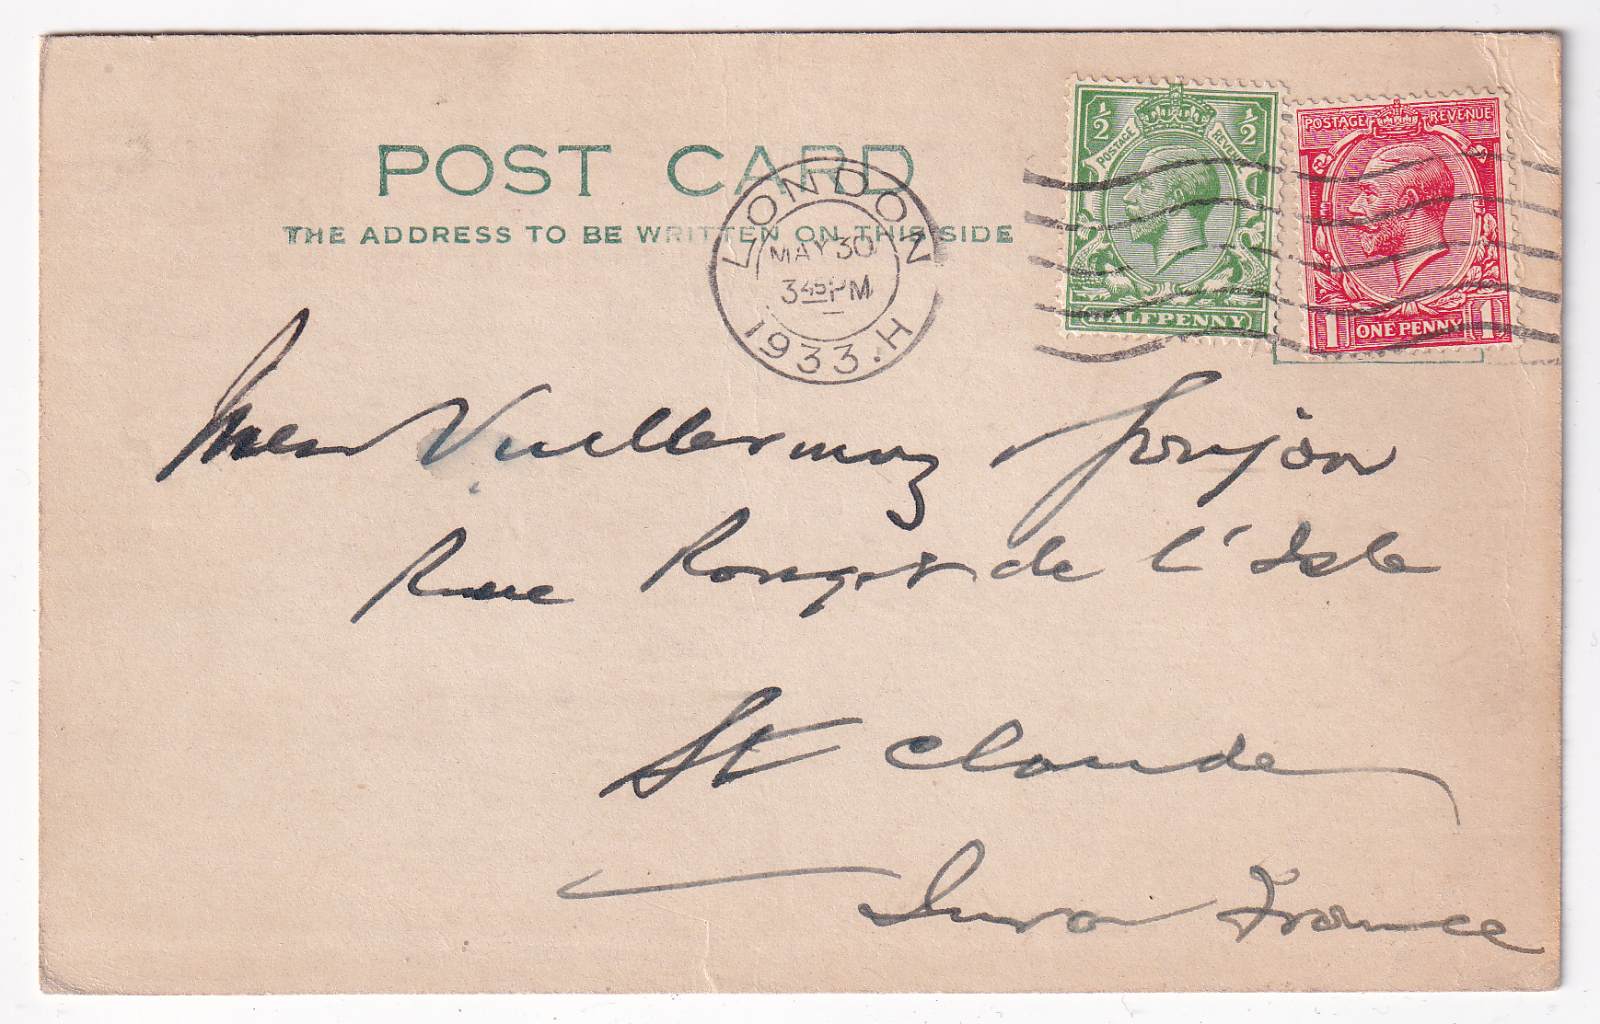 POST CARD
THE ADDRESS TO BE WRITTEN ON THIS SIDE
LONDON
MAY 30
3 45 PM
1933. H
1/2 1/2
POSTAGE REVENUE
HALFPENNY
POSTAGE REVENUE
1 ONE PENNY 1
Vuillermoz
Rue Rouget de l'Isle
St Claude
Jura France